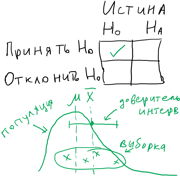 Истина
H₀ Hₐ
Принять H₀
Отклонить H₀
популяция
μ X̅
доверитель
интерв
выборка
x x x x